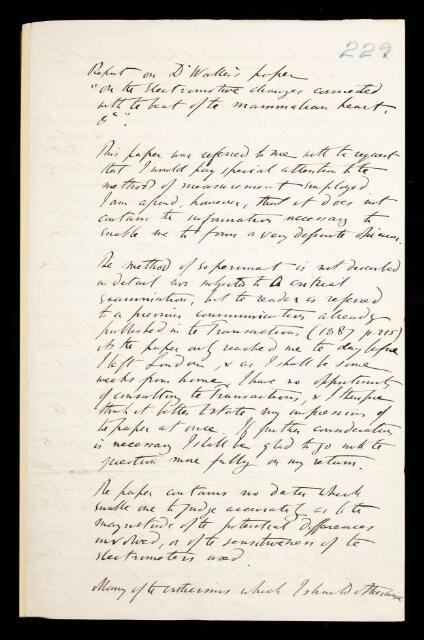 229
Report on Dr Waller's paper
"On the Electromotive changes connected
with the beat of the mammalian heart,
&c".
This paper was referred to me with the request
that I would pay special attention to the
method of measurement employed.
I am afraid, however, that it does not
contain the information necessary to
enable me to form a very definite opinion.
The method of experiment is not described
in detail nor subjected to a critical
examination, but the reader is referred
to a previous communication already
published in the Transactions (1887 p. 215)
As the paper only reached me the day before
I left London, & as I shall be some
weeks from home, I have no opportunity
of consulting the Transactions, & I therefore
think it better to state my impression of
the paper at once. If further consideration
is necessary I shall be glad to go into the
question more fully on my return.
The paper contains no data which
enable one to judge accurately as to the
magnitude of the potential differences
involved, or of the sensitiveness of the
electrometers used.
Many of the criticisms which I should otherwise